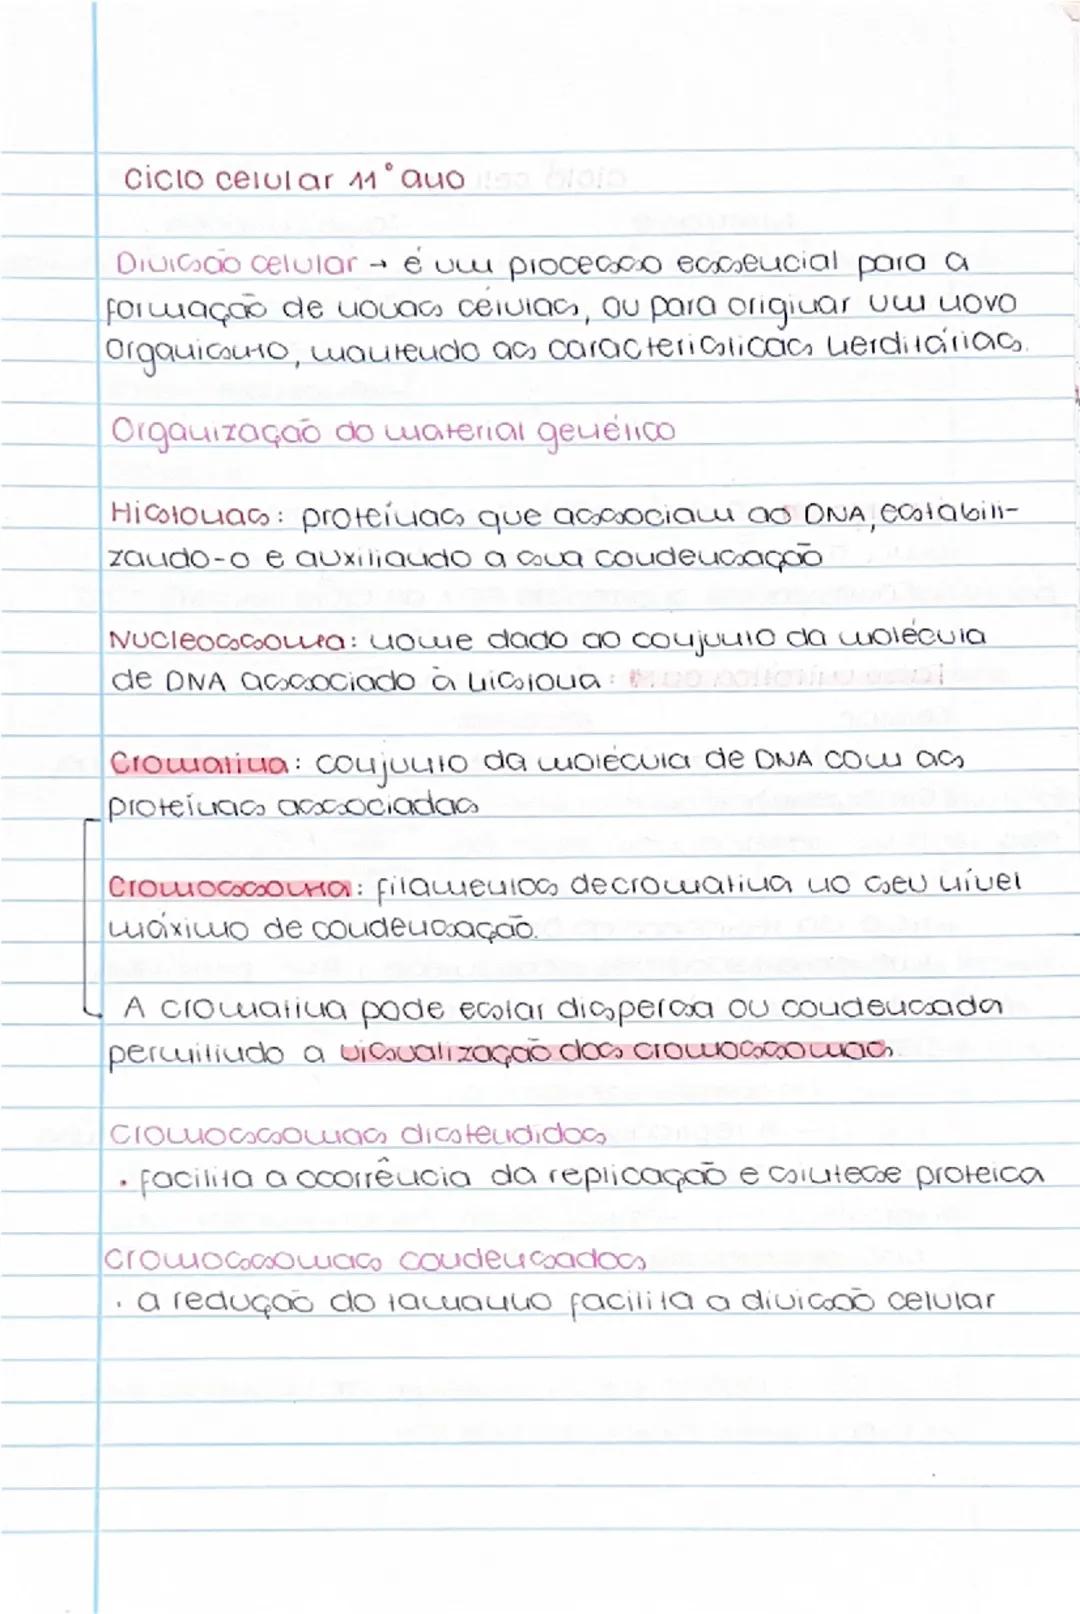 Ciclo celular 11° ano
Divisão celular → é um processo essencial para a
formação de novas células, ou para originar um novo
organismo, mantendo as características herditárias.
Organização do material genético
Histonas: proteínas que associam ao DNA, estabili-
zando-o e auxiliando a sua condensação
Nucleossoma: nome dado ao conjunto da molécula
de DNA associado à histona
Cromatina: conjunto da molécula de DNA com as
proteínas associadas
Cromossoma: filamentos decromatina no seu nível
máximo de condensação.
A cromatina pode estar dispersa ou condensada
permitindo a visualização dos cromossomas
Cromossomas distendidos
. facilita a ocorrência da replicação e síntese proteica
Cromossomas condensados
. a redução do tamanho facilita a divisão celular